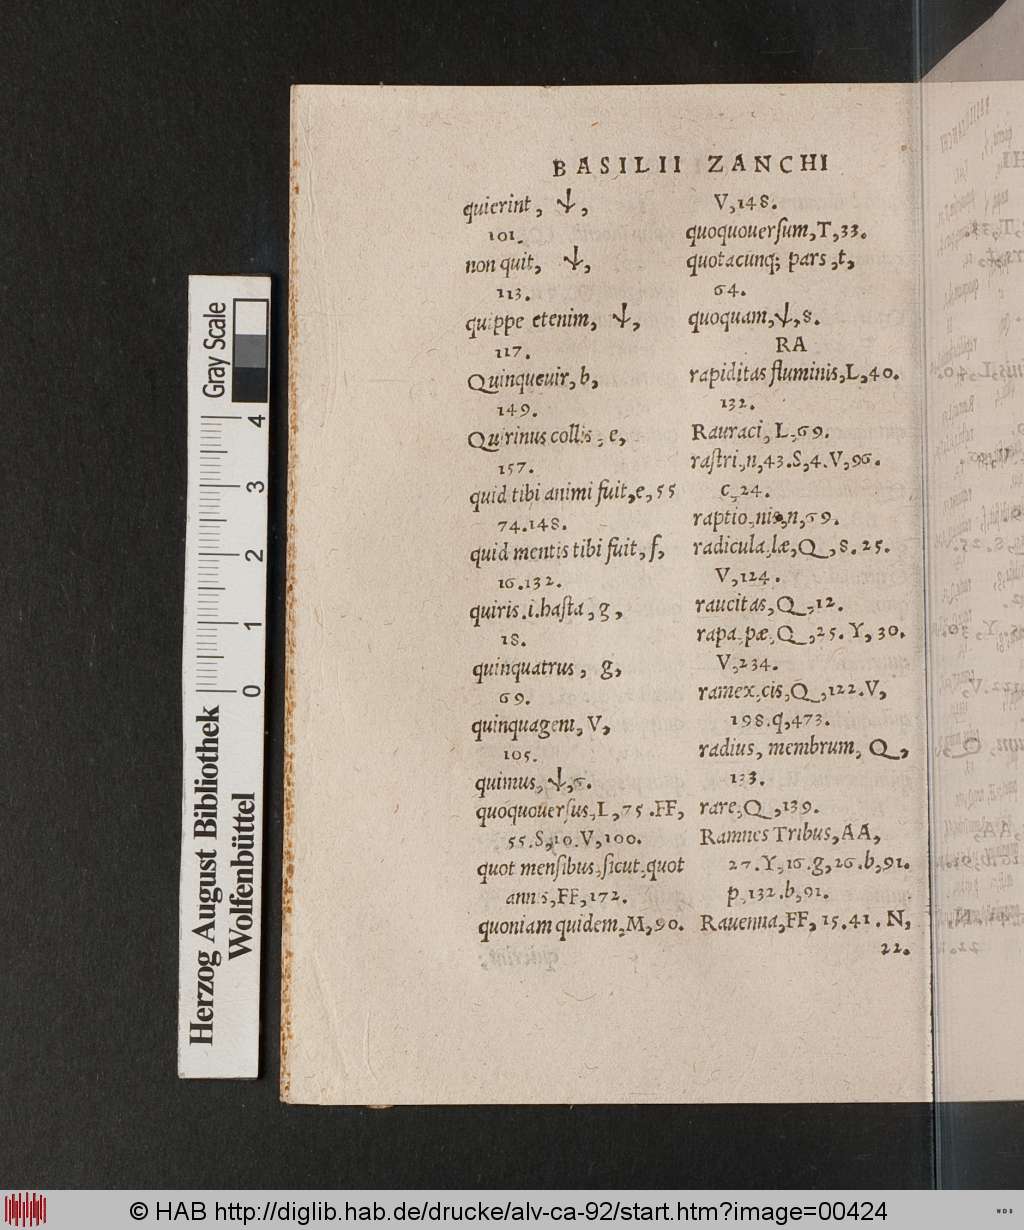 BASILII ZANCHI
quierint, ↓,
101.
non quit, ↓,
113.
quippe etenim, ↓,
117.
Quinqueuir, b,
149.
Quirinus collis, e,
157.
quid tibi animi fuit, e, 55
74.148.
quid mentis tibi fuit, f,
16.132.
quiris.i.hasta, g,
18.
quinquatrus, g,
69.
quinquageni, V,
105.
quimus, ↓, 6.
quoquouersus, L, 75.FF,
55.S,10.V,100.
quot mensibus, sicut, quot
annis, FF, 172.
quoniam quidem, M, 90.
V, 148.
quoquouersum, T, 33.
quotacunq; pars, t,
64.
quoquam, ↓, 8.
RA
rapiditas fluminis, L, 40.
132.
Rauraci, L, 69.
rastri, n, 43.S, 4.V, 96.
c, 24.
raptio, nis, n, 69.
radicula, læ, Q, 8.25.
V, 124.
raucitas, Q, 12.
rapa, pæ, Q, 25. Y, 30.
V, 234.
ramex, cis, Q, 122.V,
198.q, 473.
radius, membrum, Q,
133.
rare, Q, 139.
Ramnes Tribus, AA,
27.Y, 16.g, 26.b, 91.
p, 132.b, 91.
Rauenna, FF, 15.41. N,
22.
Gray Scale
4
3
2
1
0
Herzog August Bibliothek
Wolfenbüttel
© HAB http://diglib.hab.de/drucke/alv-ca-92/start.htm?image=00424